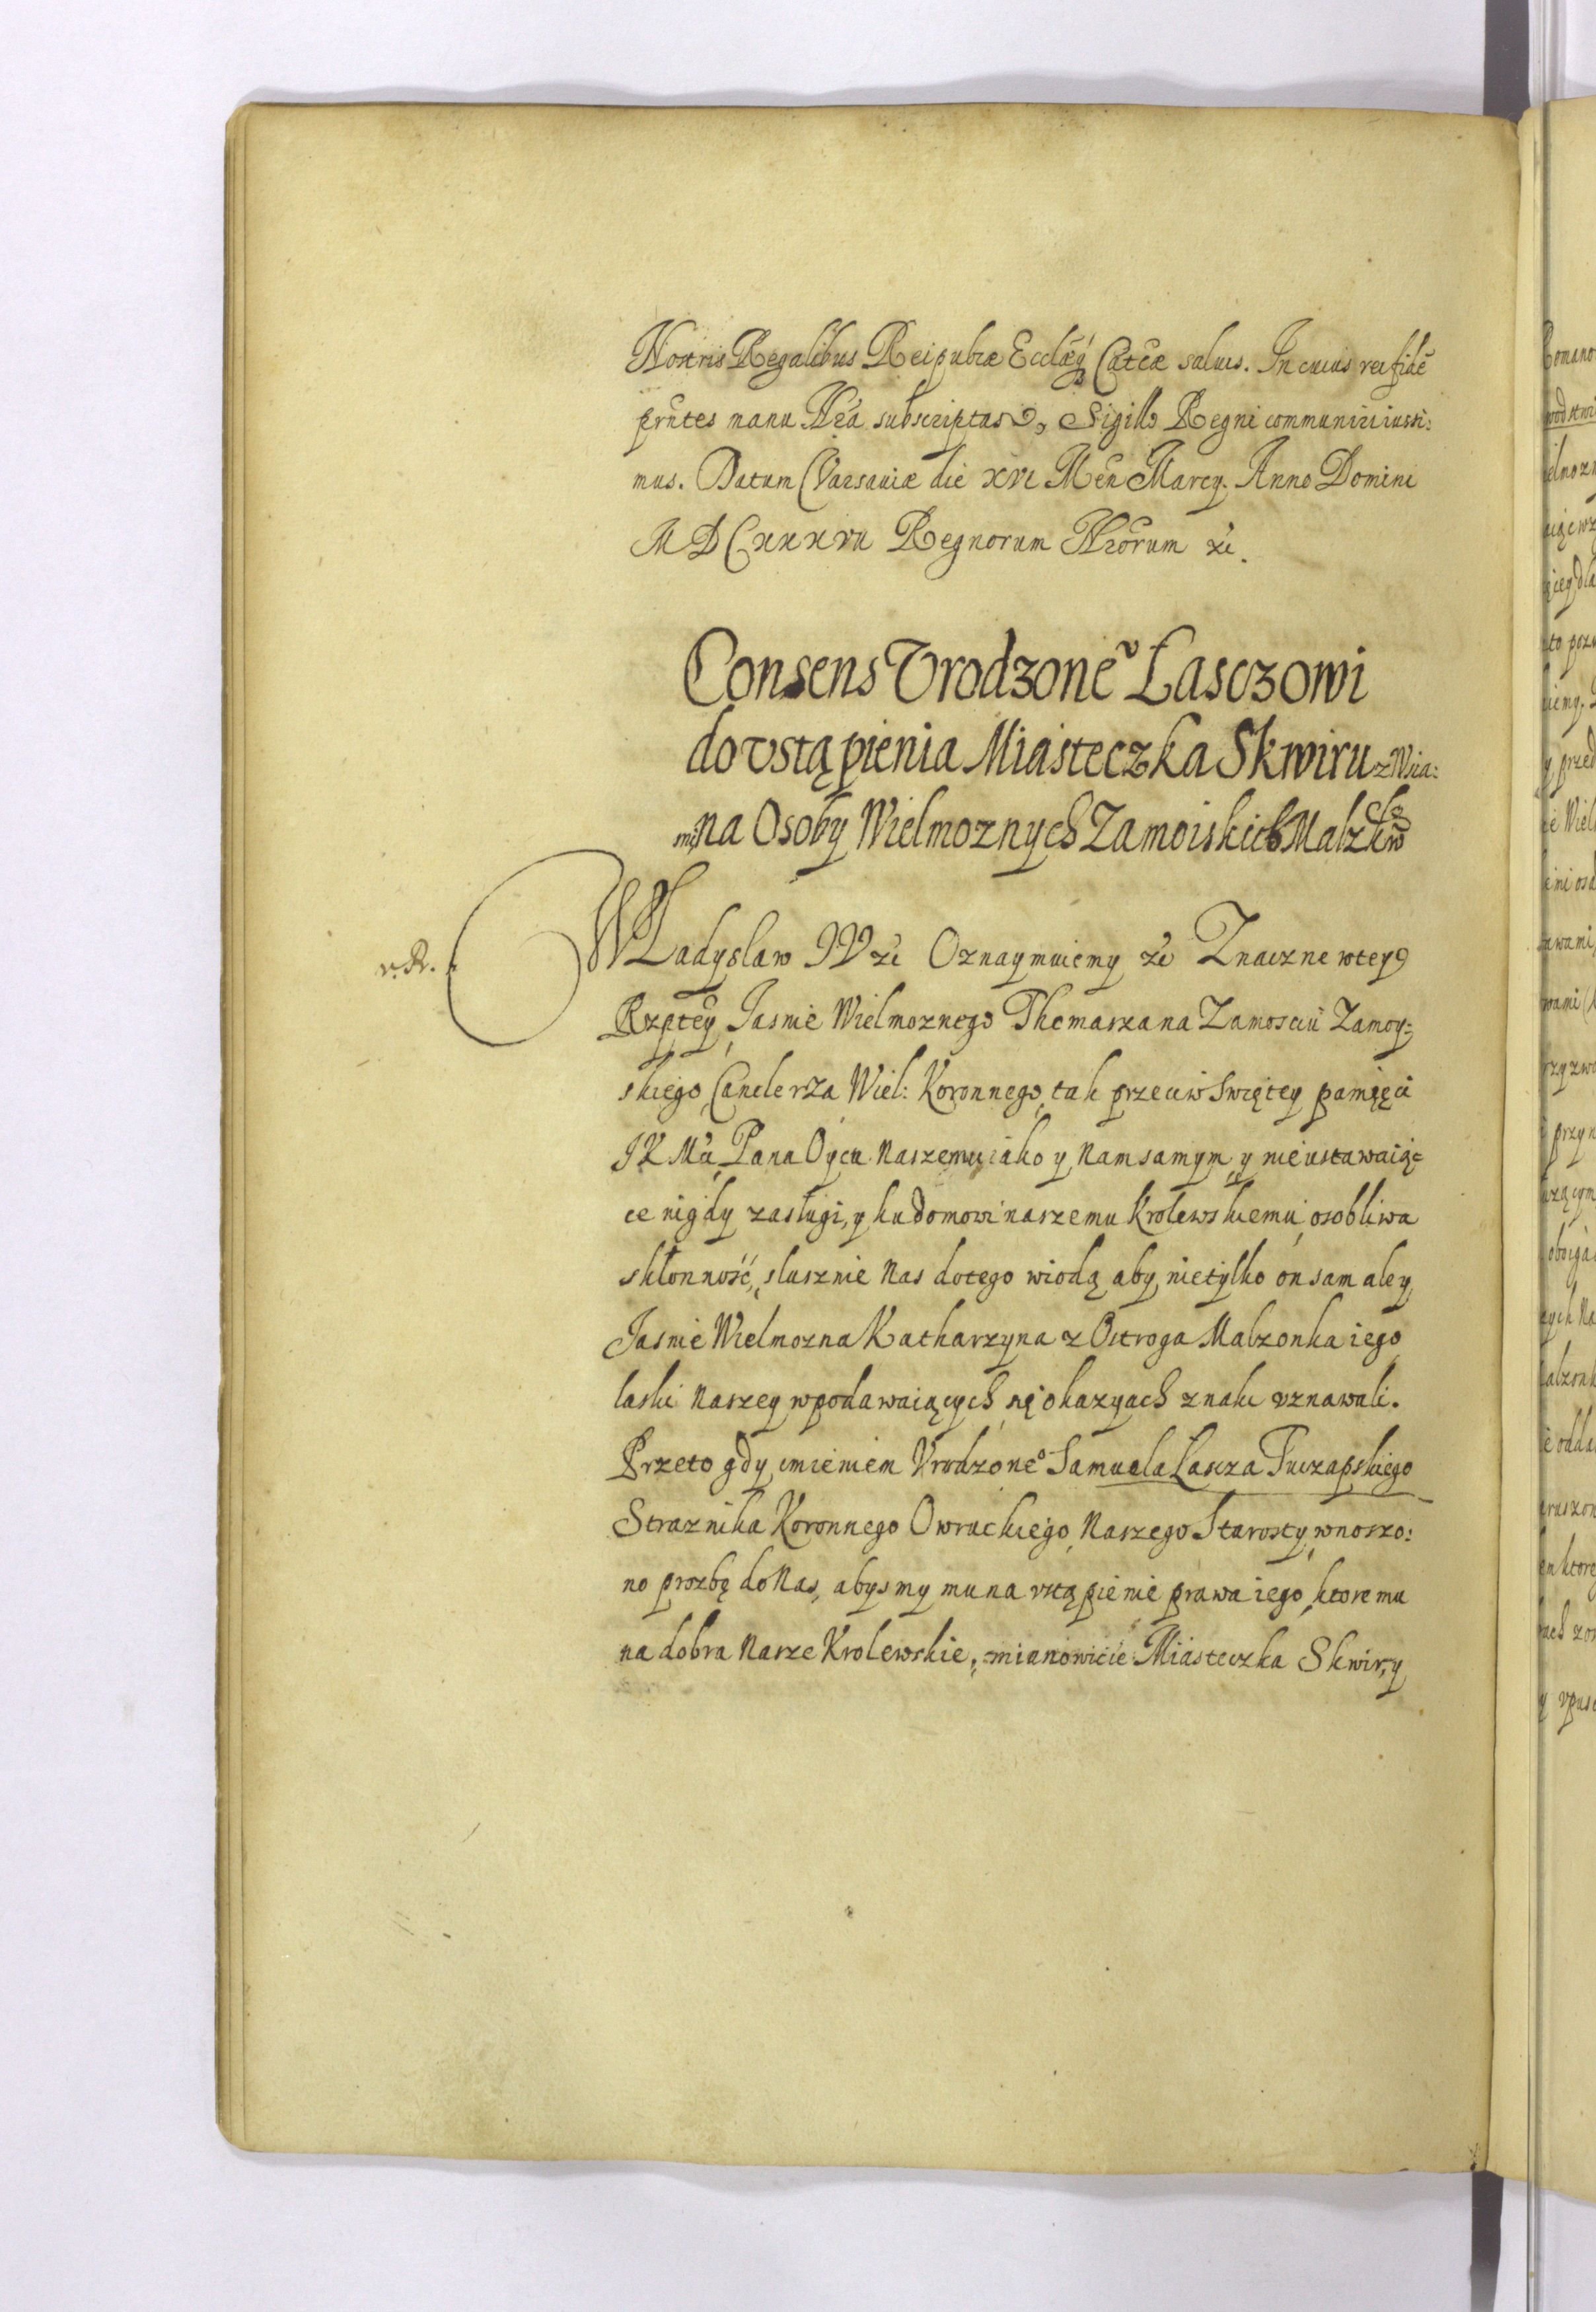 Nostris Regalibus Reipubcæ Ecclæq Catcæ saluis. In cuius rei fidē
prntes manu Nrā subscriptas, Sigillo Regni communiri iussi:
mus. Datum Varsauiæ die XVI Men Marcy. Anno Domini
MDCXXXVII Regnorum Nrorum &c.
Consens Vrodzoneº Lasczowi
do vstąpienia Miasteczka Skwiru z Wsia:
mi na Osoby Wielmoznych Zamoiskich Malzkw
v. R.
WLadyslaw IV &c Oznaymuiemy &c Znaczne w tey
Rzptey Jasnie Wielmoznego Thomasza na Zamosciu Zamoy:
skiego Canclerza Wiel: Koronnego, tak przeciw Swiętey pamięci
JK Mci Pana Oycu Naszemu iako y Nam samym y nieustawaiąc
ce nigdy zasługi, y ku domowi naszemu Krolewskiemu osobliwa
skłonność, slusznie Nas do tego wiodą aby nie tylko on sam ale y
Jasnie Wielmozna Katharzyna z Ostroga Malzonka iego
laski Naszey w podawaiących się okazyach znaki vznawali.
Przeto gdy imieniem Vrodzoneº Samuela Lascza Tuczapskiego
Straznika Koronnego Owruckiego Naszego Starosty wnoszo:
no prozbę do Nas, abysmy mu na vstąpienie prawa iego, ktore mu
na dobra Nasze Krolewskie, mianowicie Miasteczka Skwir, y